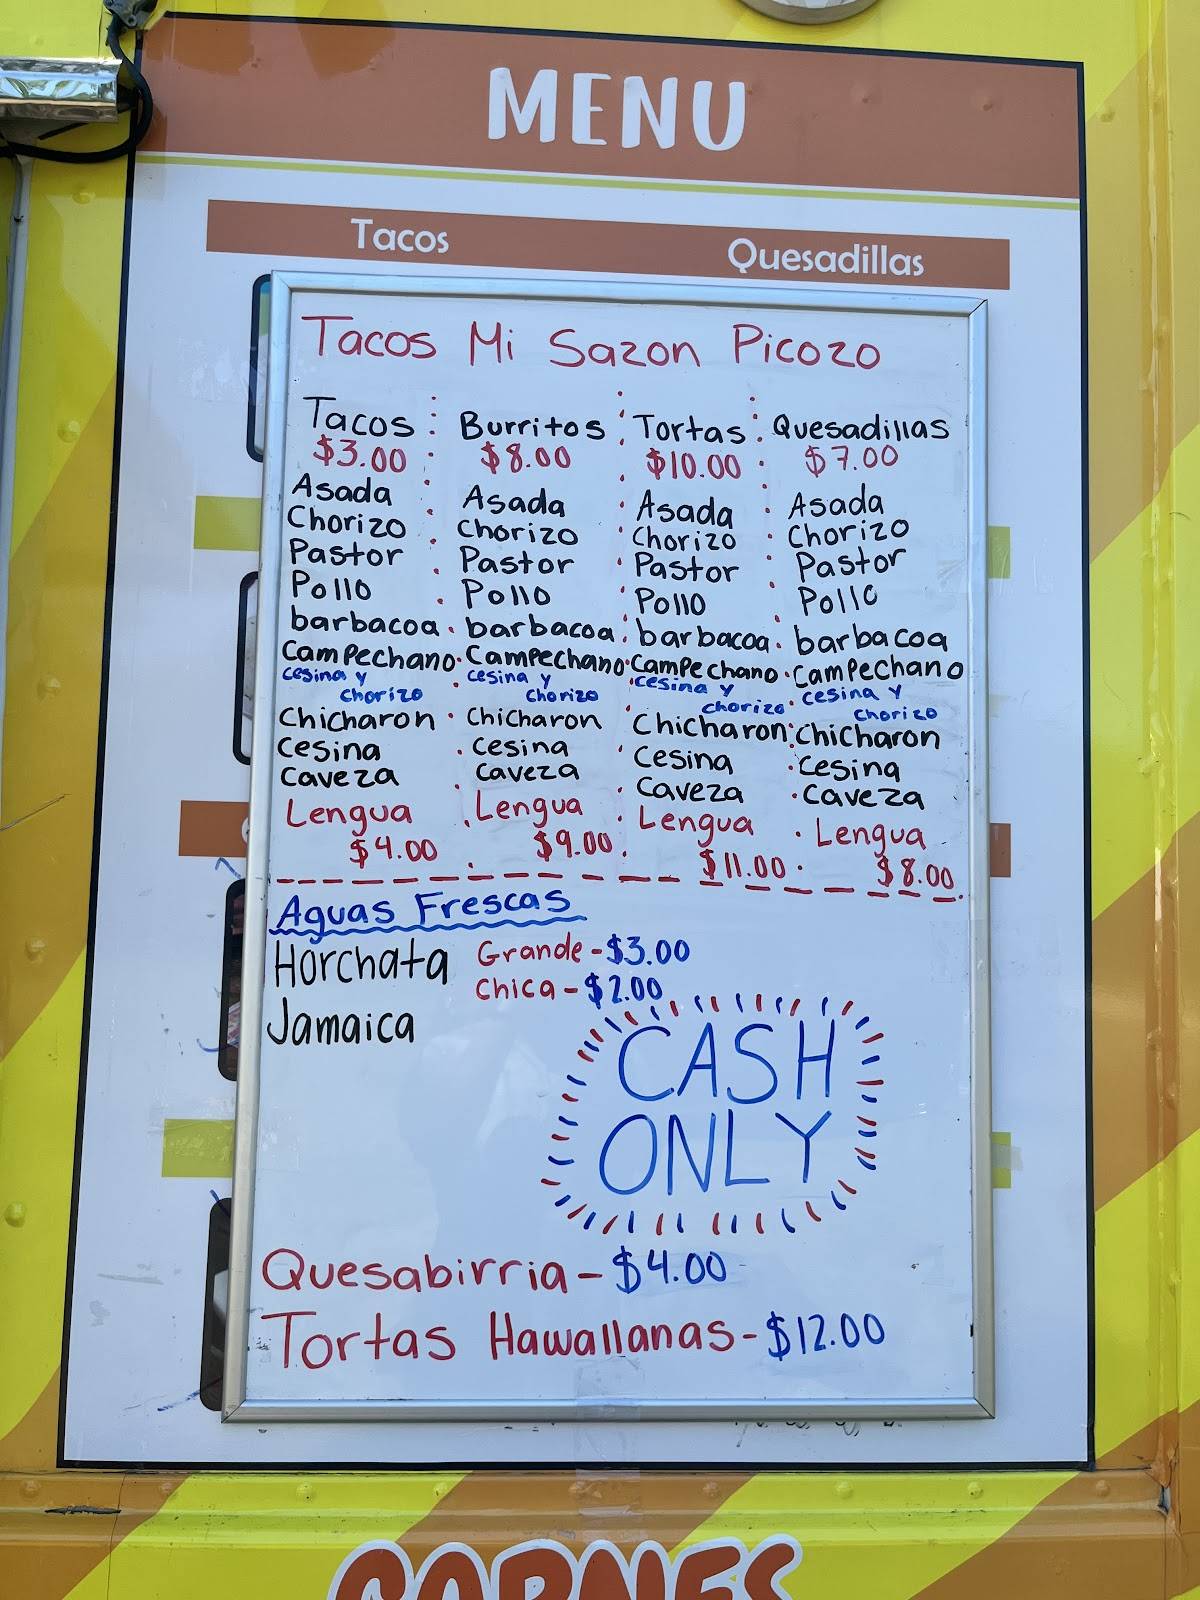 MENU
Tacos Quesadillas
Tacos Mi Sazon Picozo
Tacos Burritos Tortas Quesadillas
$3.00 $8.00 $10.00 $7.00
Asada Asada Asada Asada
Chorizo Chorizo Chorizo Chorizo
Pastor Pastor Pastor Pastor
Pollo Pollo Pollo Pollo
barbacoa barbacoa barbacoa barbacoa
Campechano Campechano Campechano Campechano
cesina y cesina y cesina y cesina y
chorizo chorizo chorizo chorizo
Chicharon Chicharon Chicharon Chicharon
Cesina Cesina Cesina Cesina
Caveza Caveza Caveza Caveza
Lengua Lengua Lengua Lengua
$4.00 $9.00 $11.00 $8.00
Aguas Frescas
Horchata Grande - $3.00
Chica - $2.00
Jamaica
CASH
ONLY
Quesabirria - $4.00
Tortas Hawallanas - $12.00
CARNES